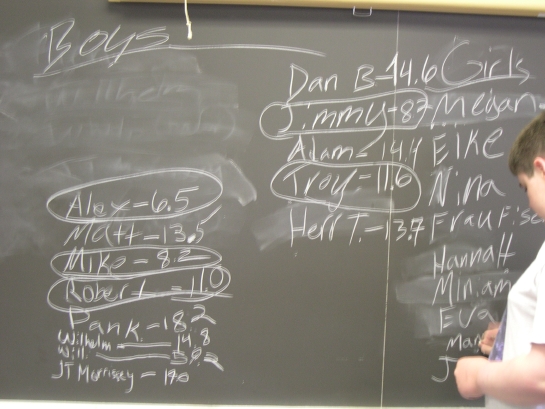 Boys
Alex-6.5
Matt-13.5
Mike-8.2
Robert-11.0
Pank-18.2
Wilhelm - 14.8
Will.
JT Morrissey - 14.0
Dan B-14.6
Jimmy-8.7
Adam-14.4
Troy-11.6
Herr T.-13.7
Girls
Megan
Elke
Nina
Frau
Hannah
Miriam
Eva